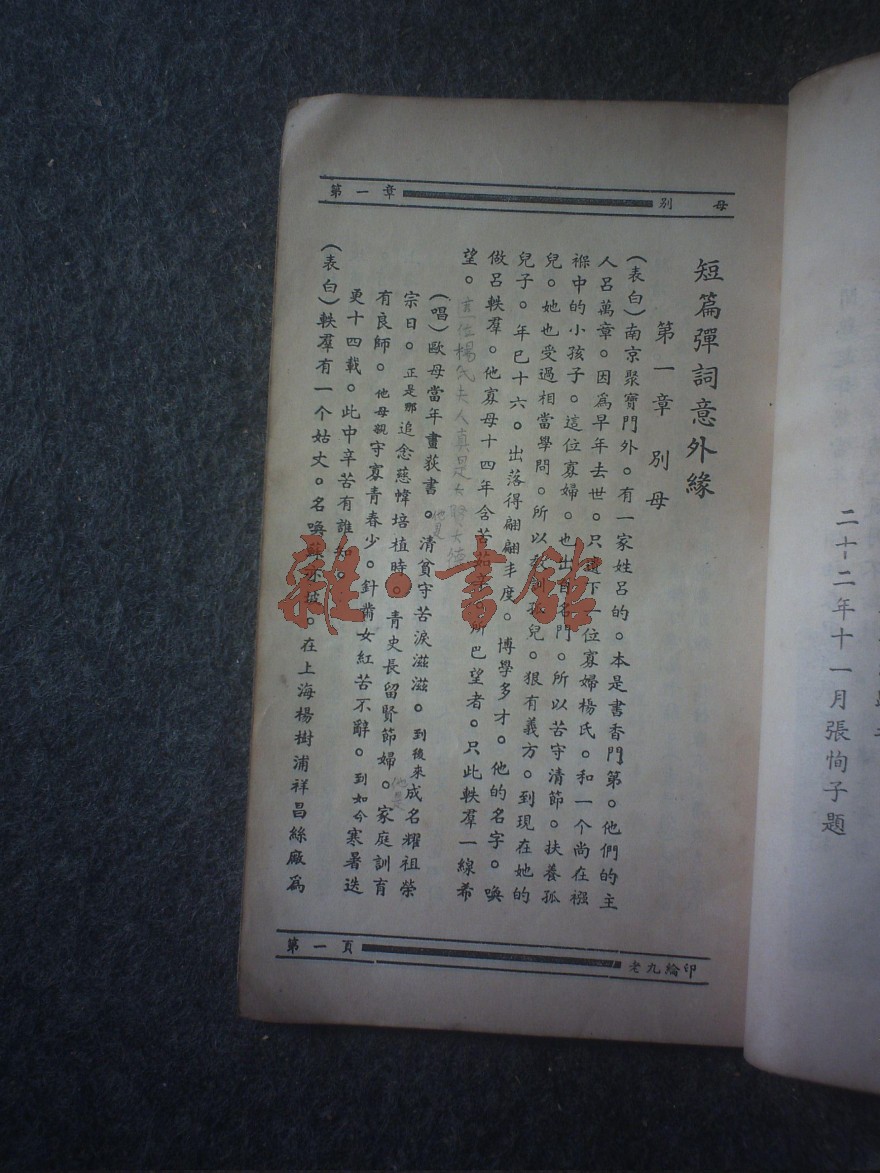 二十二年十一月張恂子題
第一章
別母
短篇彈詞意外緣
第一章 別母
(表白)南京聚寶門外。有一家姓呂的。本是書香門第。他們的主
人呂萬章。因爲早年去世。只遺下一位寡婦楊氏。和一个尚在襁
褓中的小孩子。這位寡婦。也出自名門。所以苦守清節。扶養孤
兒。她也受過相當學問。所以教訓孤兒。狠有義方。到現在她的
兒子。年已十六。出落得翩翩丰度。博學多才。他的名字。喚
做呂軼羣。他寡母十四年含苦茹辛。所巴望者。只此軼羣一線希
望。
楊氏夫人真是大賢大德
(唱)歐母當年畫荻書。清貧守苦淚滋滋。到後來成名耀祖榮
他是
宗日。正是那追念慈幃培植時。青史長留賢節婦。家庭訓育
他是
有良師。他母親守寡青春少。針黹女紅苦不辭。到如今寒暑迭
更十四載。此中辛苦有誰知。
(表白)軼羣有一个姑丈。名喚蘇亦坡。在上海楊樹浦祥昌絲廠爲
第一頁
老九綸印
雜·書館